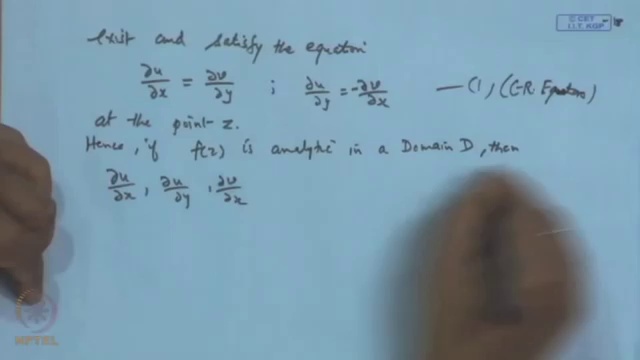 © CET
I.I.T. KGP
exist and satisfy the equation
∂u/∂x = ∂v/∂y ; ∂u/∂y = -∂v/∂x — (1) (C-R. Equations)
at the point z.
Hence, if f(z) is analytic in a Domain D, then
∂u/∂x, ∂u/∂y, ∂v/∂x
NPTEL